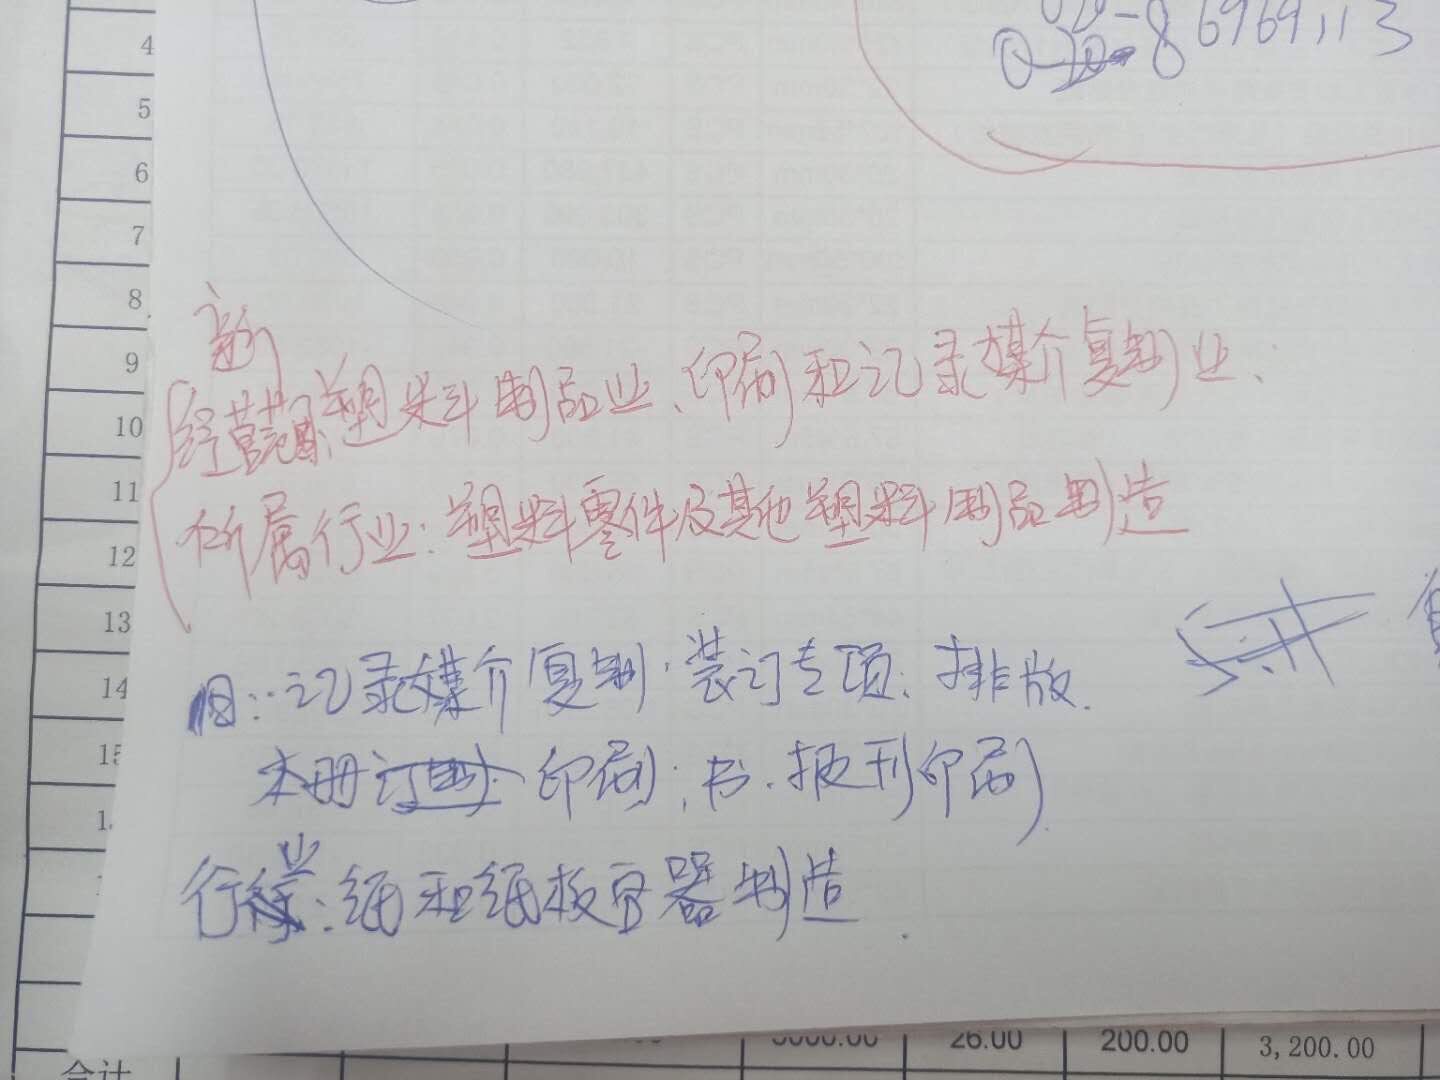 86969113
4
5
6
7
8
9
10
11
12
13
14
新
经营范围:塑料制品业、印刷和记录媒介复制业:
所属行业:塑料零件及其他塑料制品制造
旧:记录媒介复制.装订专项:排版.
本册印刷;书.报刊印刷
行业:纸和纸板容器制造.
26.00 200.00 3,200.00
合计